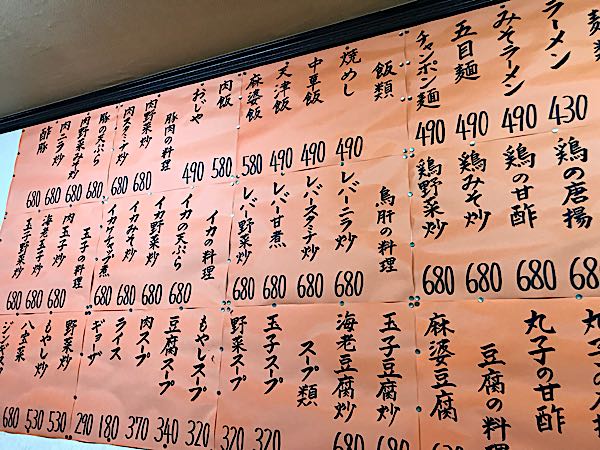 麺類
ラーメン 430
みそラーメン 490
五目麺 490
チャンポン麺 490
飯類
焼めし 490
中華飯 490
天津飯 490
麻婆飯 580
肉飯 580
おじや 490
豚肉の料理
肉野菜炒 680
肉スタミナ炒 680
豚の天ぷら 680
肉野菜みそ炒 680
肉ニラ炒 680
酢豚 680
鶏の唐揚
鶏の甘酢 680
鶏みそ炒 680
鶏野菜炒 680
鳥肝の料理
レバーニラ炒 680
レバースタミナ炒 680
レバー甘煮 680
レバー野菜炒 680
イカの料理
イカの天ぷら 680
イカ野菜炒 680
イカみそ炒 680
イカケチャップ煮 680
玉子の料理
肉玉子炒 680
海老玉子炒 680
玉子野菜炒 680
丸子の甘酢
豆腐の料理
麻婆豆腐
玉子豆腐炒 680
海老豆腐炒 680
スープ類
玉子スープ 320
野菜スープ 320
もやしスープ 320
豆腐スープ 340
肉スープ 370
ライス 180
ギョーザ 290
野菜炒 530
もやし炒 530
八宝菜 680